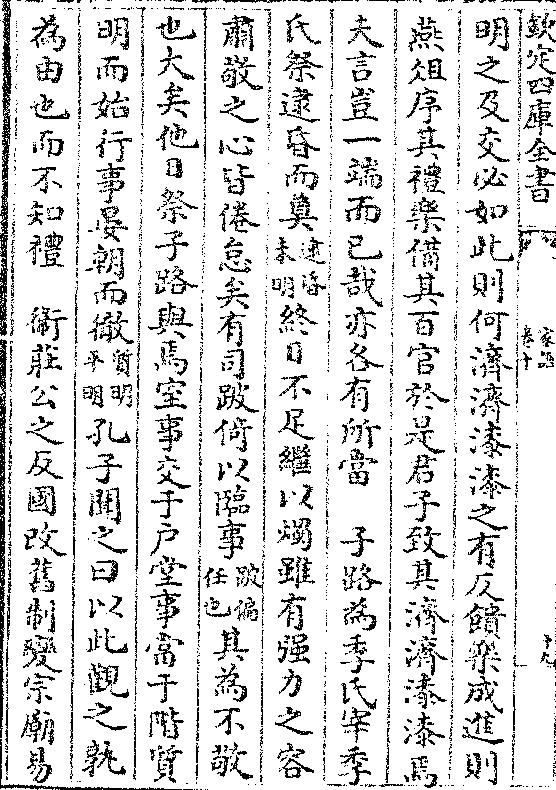 欽定四庫全書
家語
卷十
明之及交必如此則何濟濟漆漆之有反饋樂成進則
燕俎序其禮樂備其百官於是君子致其濟濟漆漆焉
夫言豈一端而已哉亦各有所當　子路為季氏宰季
氏祭逮昏而奠逮昏未明終日不足繼以燭雖有强力之容
肅敬之心皆倦怠矣有司跛倚以臨事跛偏任也其為不敬
也大矣他日祭子路與焉室事交于户堂事當于階質
明而始行事晏朝而徹質明平明孔子聞之曰以此觀之孰
為由也而不知禮　衛莊公之反國改舊制變宗廟易